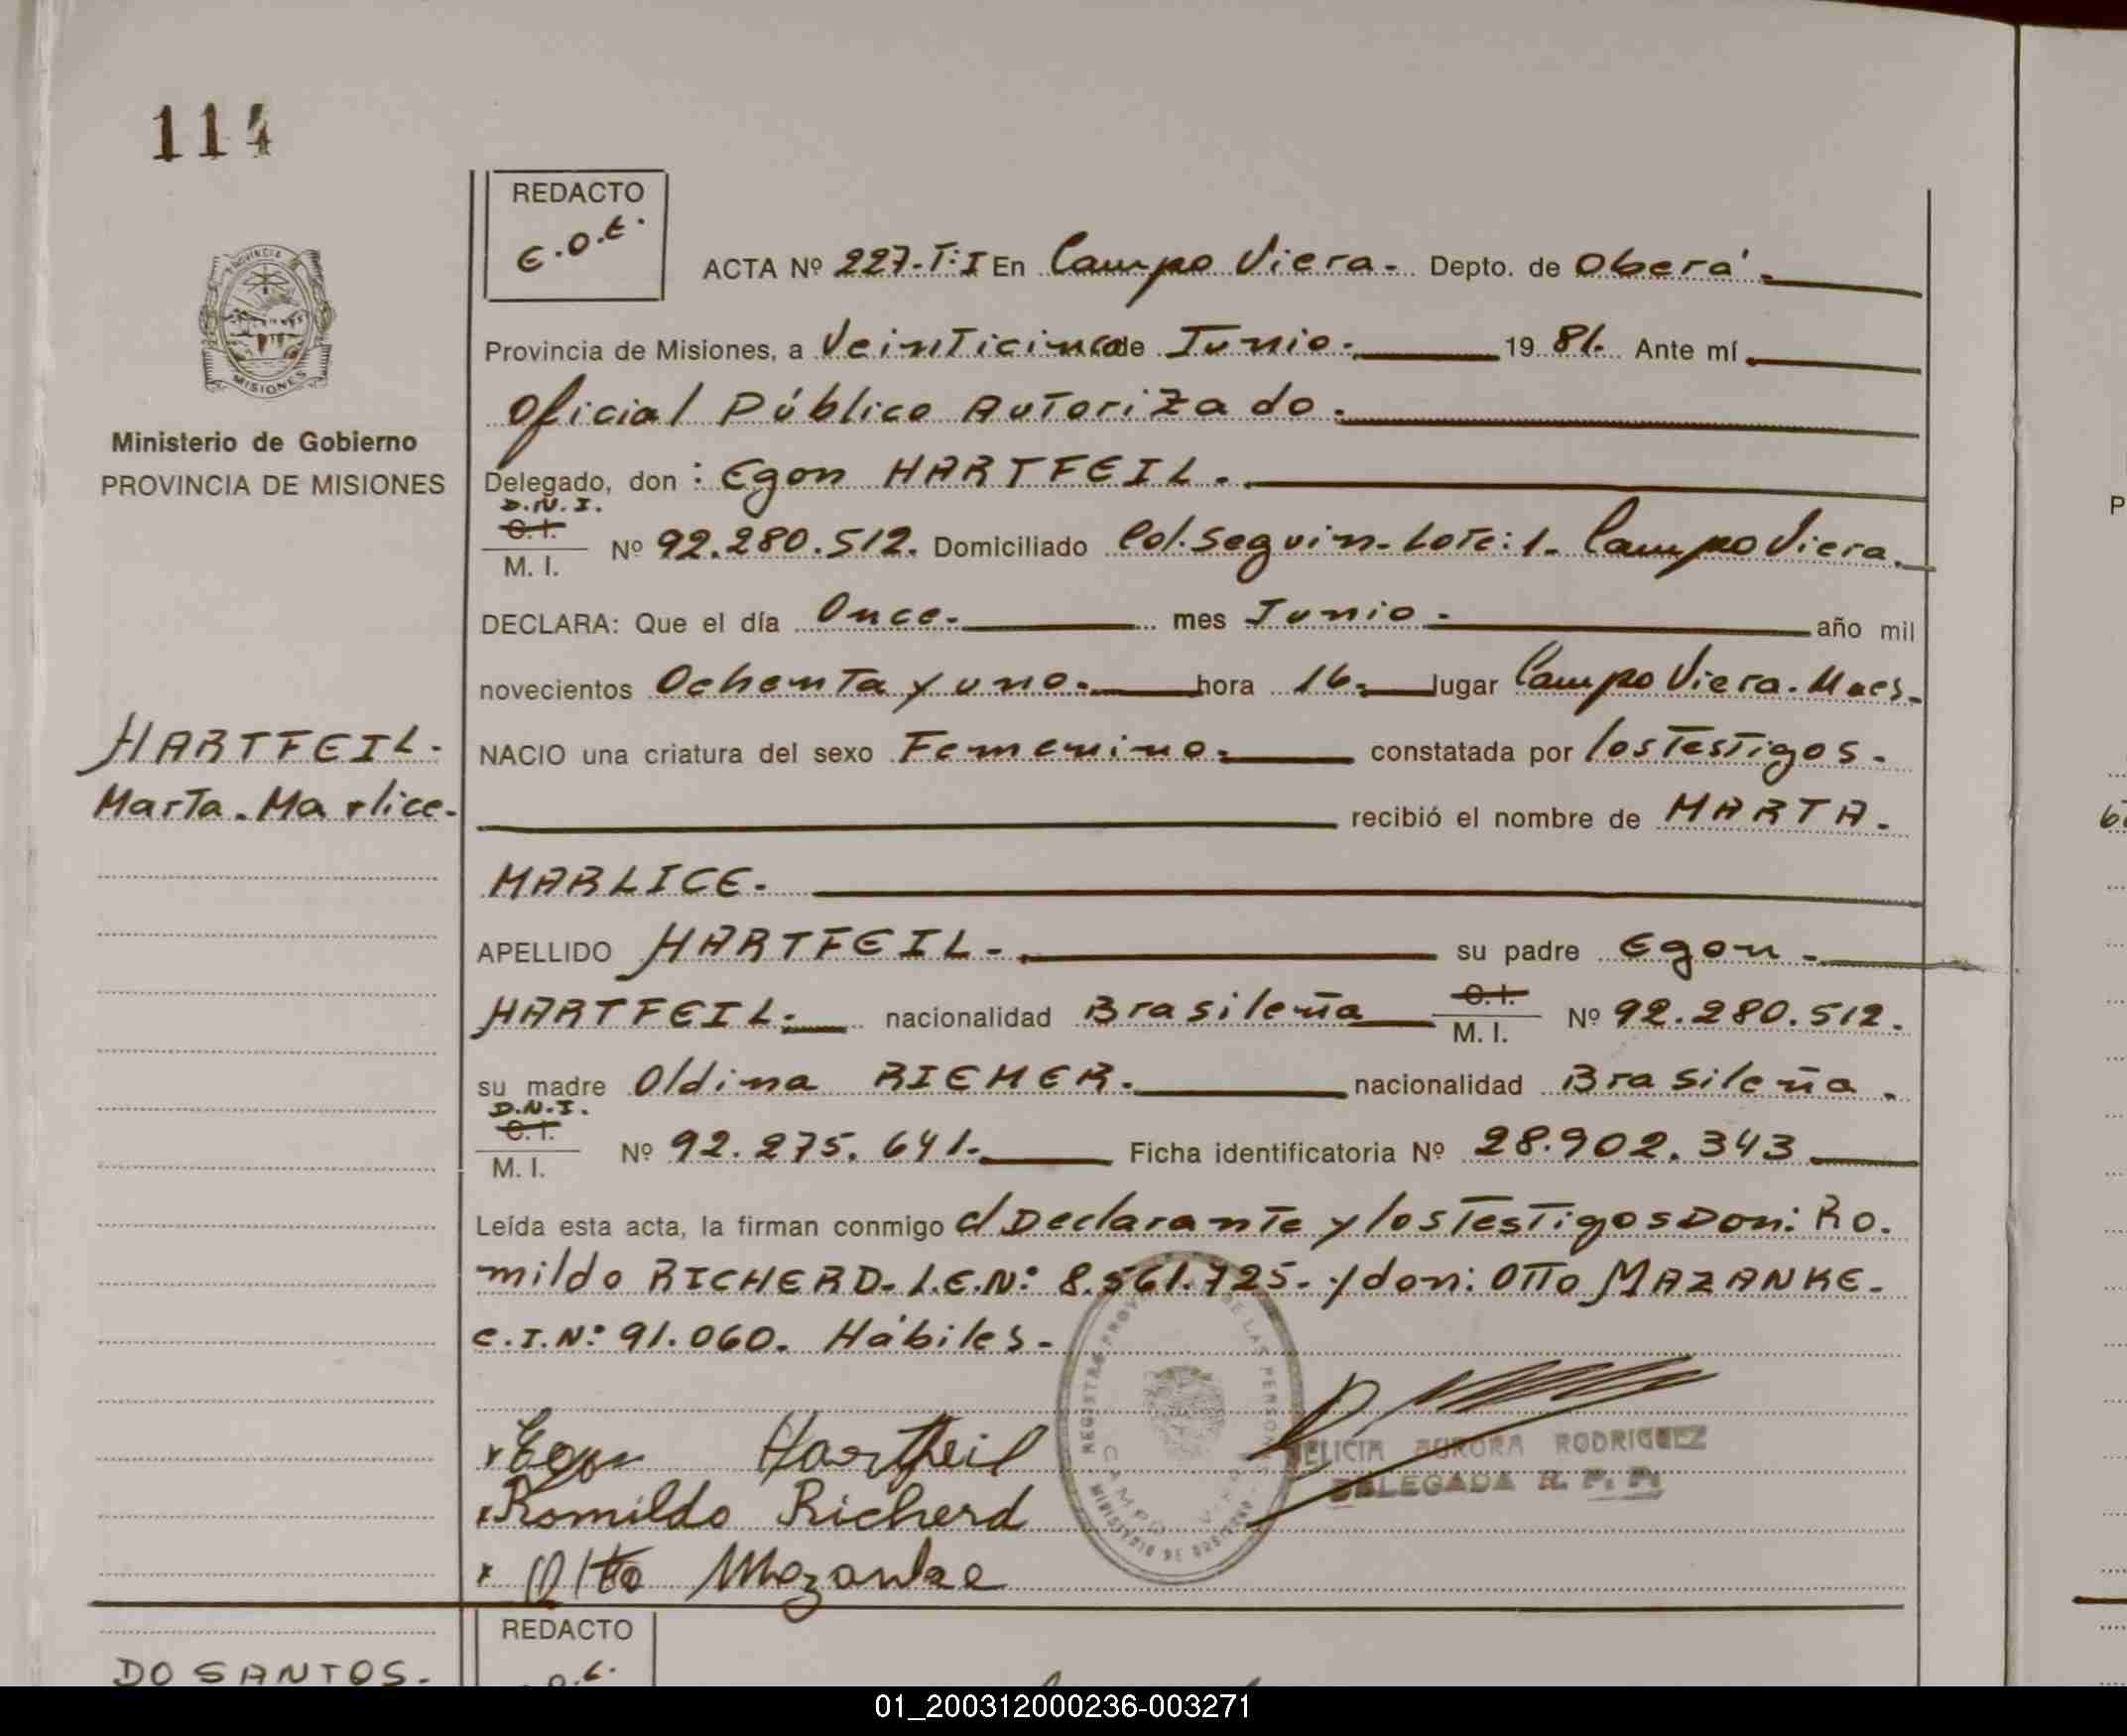 114
REDACTO
E.O.t.
ACTA Nº 227-T:I En Campo Viera. Depto. de Oberá.
PROVINCIA
MISIONES
Provincia de Misiones, a Veinticinco de Junio. 19 81. Ante mí
Oficial Público Autorizado.
Ministerio de Gobierno
PROVINCIA DE MISIONES
Delegado, don : Egon HARTFEIL.
D.N.I.
C.I.
M. I.
Nº 92.280.512. Domiciliado Col. Seguin. Lote: 1. Campo Viera.
DECLARA: Que el día Once. mes Junio. año mil
novecientos Ochenta y uno. hora 16. lugar Campo Viera. Mnes.
HARTFEIL.
Marta. Marlice.
NACIO una criatura del sexo Femenino. constatada por los Testigos.
recibió el nombre de MARTA.
MARLICE.
APELLIDO HARTFEIL. su padre Egon.
HARTFEIL. nacionalidad Brasileña C.I. M. I. Nº 92.280.512.
su madre Oldina RIEMER. nacionalidad Brasileña.
D.N.I.
C.I.
M. I.
Nº 92.275.641. Ficha identificatoria Nº 28.902.343
Leída esta acta, la firman conmigo el Declarante y los Testigos Don: Ro.
mildo RICHERD. L.E.Nº: 8.561.725. y don: OTTO MAZANKE.
C.I.Nº: 91.060. Hábiles.
Egon Hartfeil
Romildo Richerd
Otto Mazanke
CAMPO VIERA
MINISTERIO DE GOBIERNO
FELICIA AURORA RODRIGUEZ
DELEGADA R. P. P.
REDACTO
DO SANTOS.
01_200312000236-003271